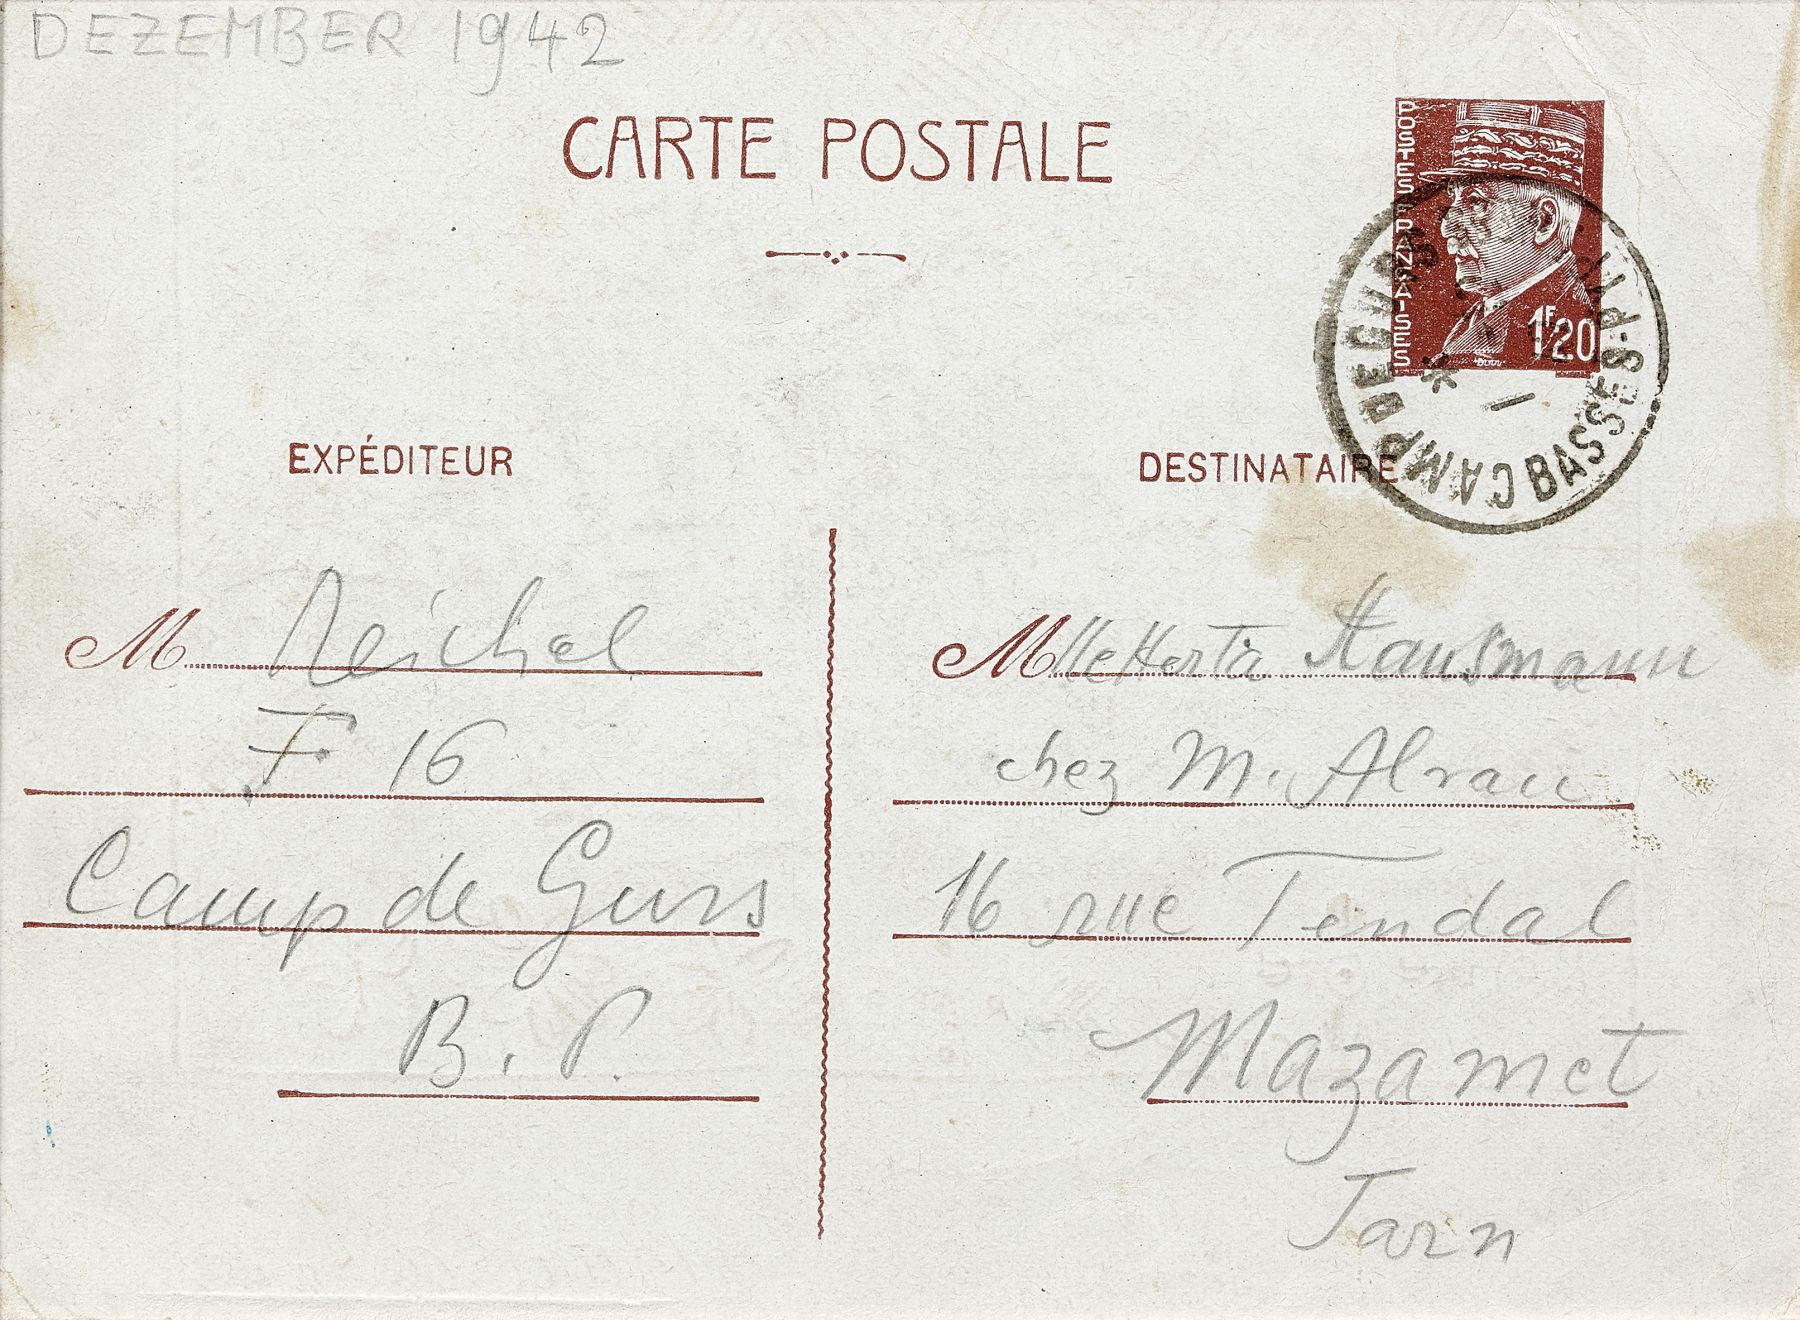 DEZEMBER 1942
CARTE POSTALE
POSTES FRANÇAISES
1F20
CAMP DE GURS
BASSES-P
EXPÉDITEUR
M Reichel
F 16
Camp de Gurs
B. P.
DESTINATAIRE
Mlle Herta Hausmann
chez M. Alrau
16 rue Tendal
Mazamet
Tarn